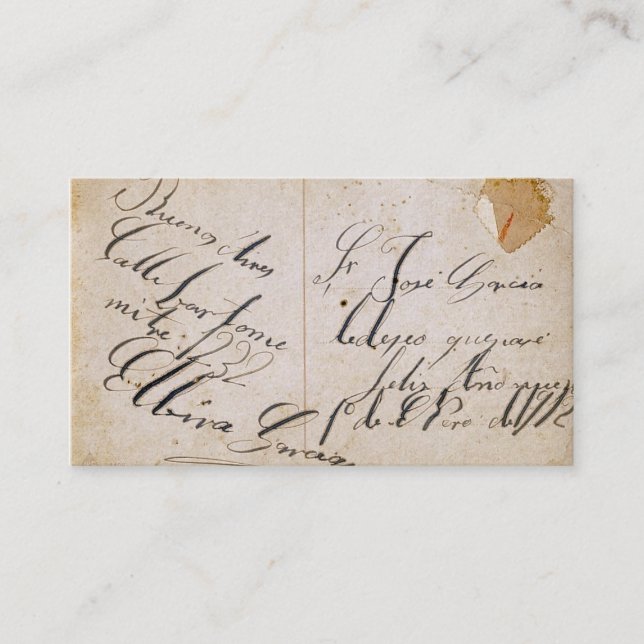 Buenos Aires
Calle Bartome
mitre 1232
Elbira Garcia
Sr José Garcia
le deseo que pase
felis Año nue
1º de Enero de 1912